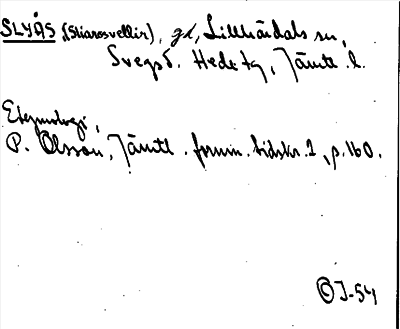 SLYÅS, (Sliarosvellir), gd, Lillhärdals sn,
Svegs d. Hede tg, Jämtl. l.
Etymologi,
P. Olsson, Jämtl. fornm. tidskr. 1, p. 160.
© J-54